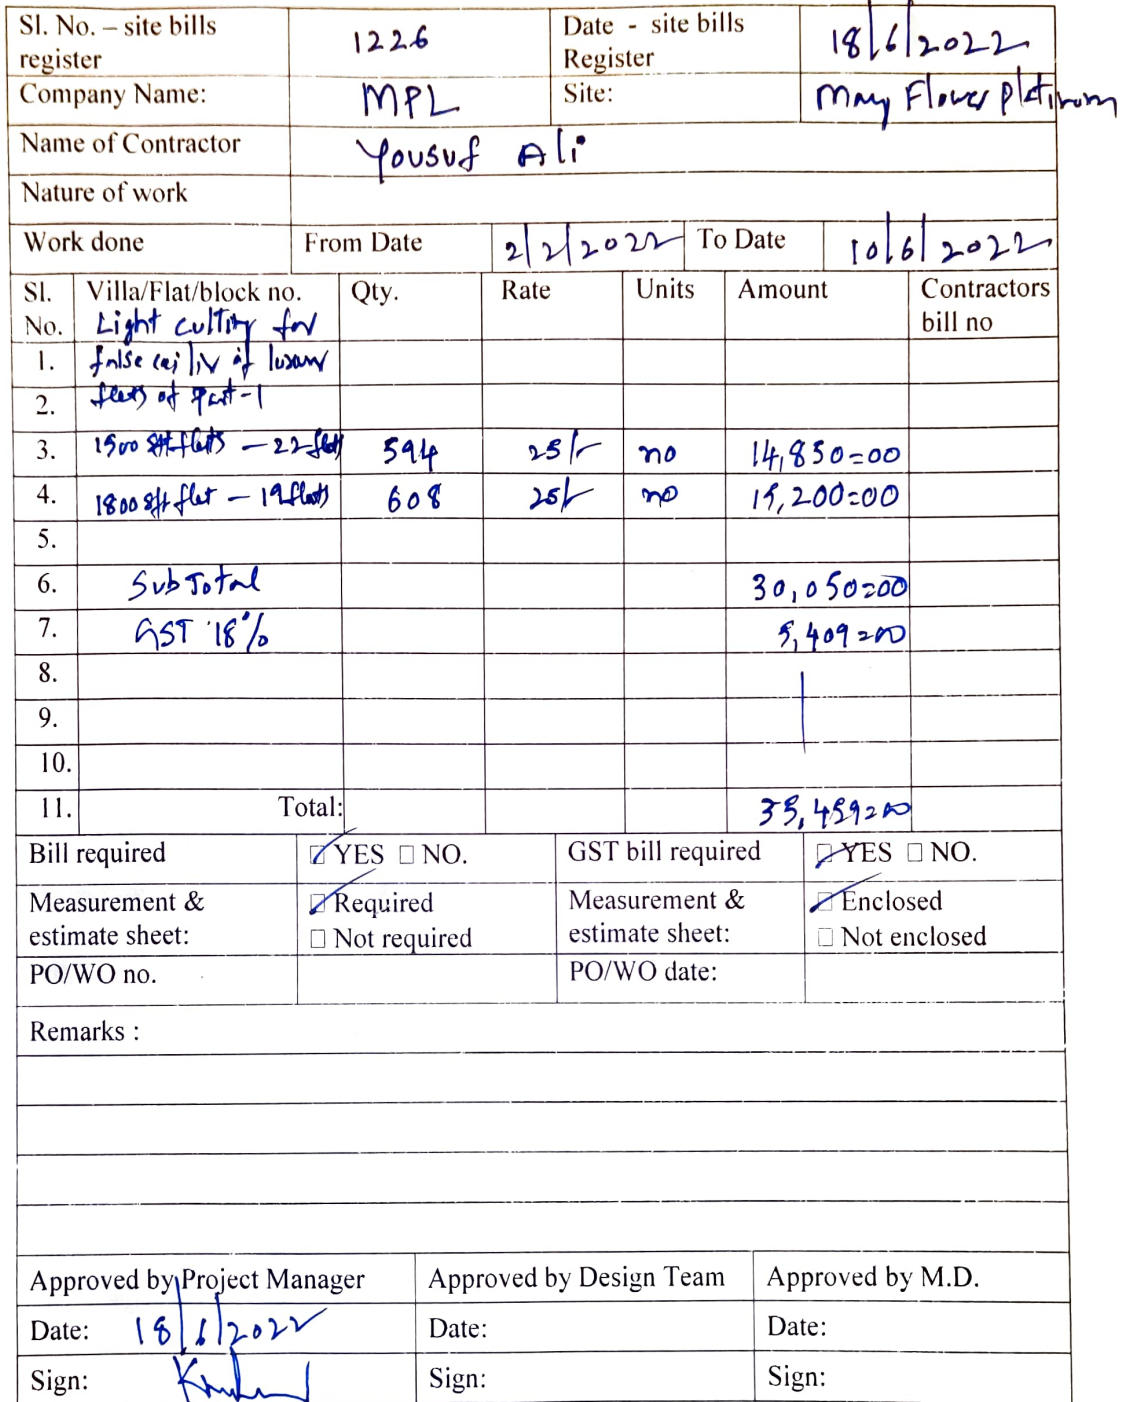 Sl. No. – site bills register 1226 Date - site bills Register 18/6/2022
Company Name: MPL Site: May Flower platinum
Name of Contractor Yousuf Ali
Nature of work
Work done From Date 2/2/2022 To Date 10/6/2022
Sl. No. Villa/Flat/block no. Qty. Rate Units Amount Contractors bill no
Light cutting for
1. false
2. flats of Part-1
3. 1500 sft flats – 22 flats 594 25/- no 14,850=00
4. 1800 sft flat – 19 flats 608 25/- no 15,200=00
5.
6. Sub Total 30,050=00
7. GST 18% 5,409=00
8.
9.
10.
11. Total: 35,459=00
Bill required YES NO. GST bill required YES NO.
Measurement & estimate sheet: Required Not required Measurement & estimate sheet: Enclosed Not enclosed
PO/WO no. PO/WO date:
Remarks :
Approved by Project Manager Approved by Design Team Approved by M.D.
Date: 18/6/2022 Date: Date:
Sign: Sign: Sign: